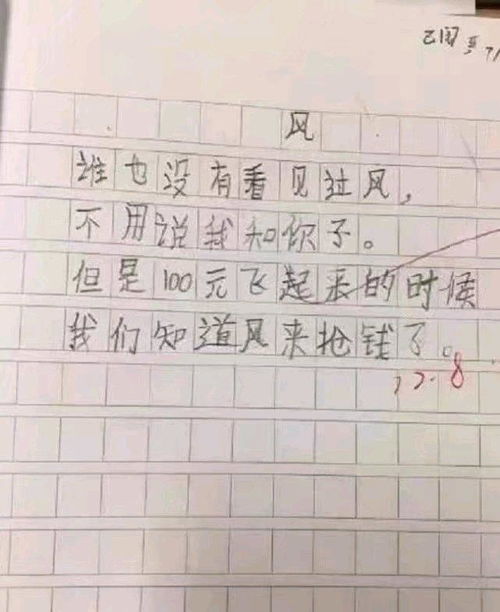 已阅
风
谁也没有看见过风,
不用说我和你了。
但是100元飞起来的时候
我们知道风来抢钱了。
12.8